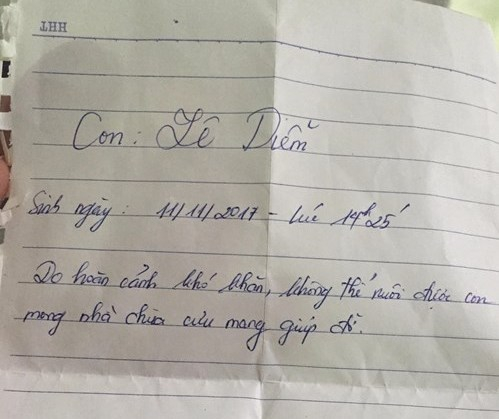 THH
Con: Lê Diễm
Sinh ngày: 11/11/2017 - lúc 14h25'
Do hoàn cảnh khó khăn, không thể nuôi được con
mong nhà chùa cưu mang giúp đỡ.